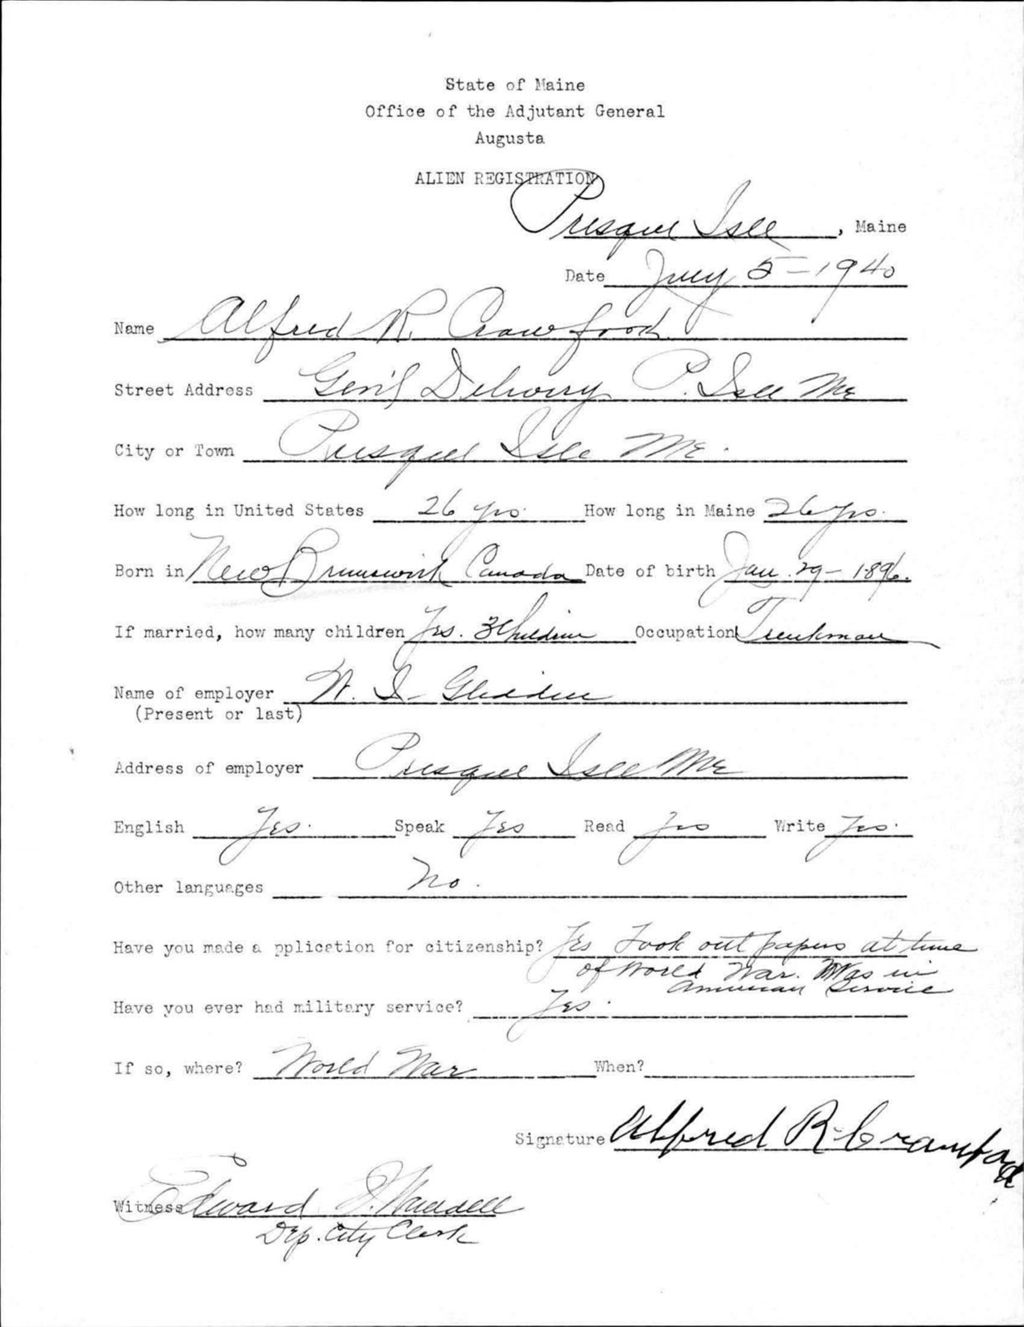 State of Maine
Office of the Adjutant General
Augusta
ALIEN REGISTRATION
Presque Isle, Maine
Date July 5-1940
Name Alfred R. Crawford.
Street Address Gen'l Delivery P. Isle Me
City or Town Presque Isle Me.
How long in United States 26 yrs. How long in Maine 26 yrs.
Born in New Brunswick Canada Date of birth Jan. 29-1896.
If married, how many children Yes. 3 Children Occupation Truckman
Name of employer
(Present or last)
Address of employer Presque Isle Me
English Yes. Speak Yes Read Yes Write Yes.
Other languages No.
Have you made a pplication for citizenship? Yes Took out papers at time
of World War. Was in
American Service
Have you ever had military service? Yes.
If so, where? World War When?
Signature Alfred R. Crawford
Witness Edward
Dep. City Clerk